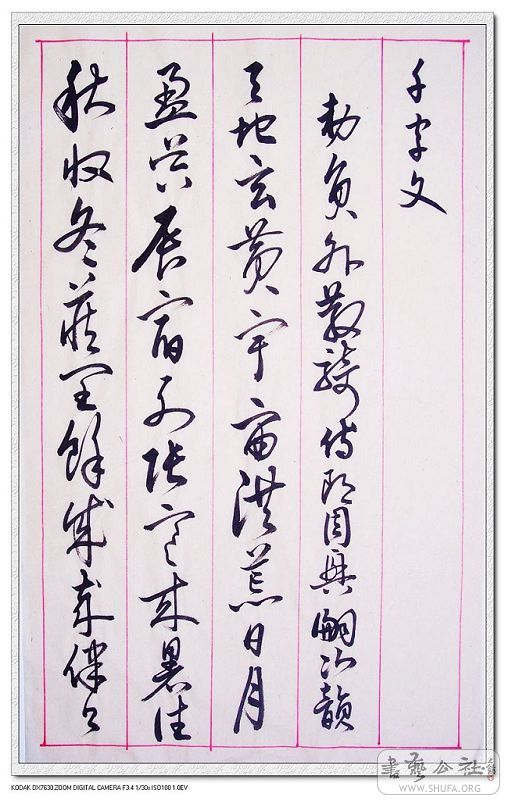 千字文
勅員外散騎侍郎周興嗣次韻
天地玄黃宇宙洪荒日月
盈昃辰宿列張寒来暑往
秋收冬藏閏餘成歳律呂
書藝公社
WWW.SHUFA.ORG
KODAK DX7630 ZOOM DIGITAL CAMERA F3.4 1/30s ISO100 1.0EV